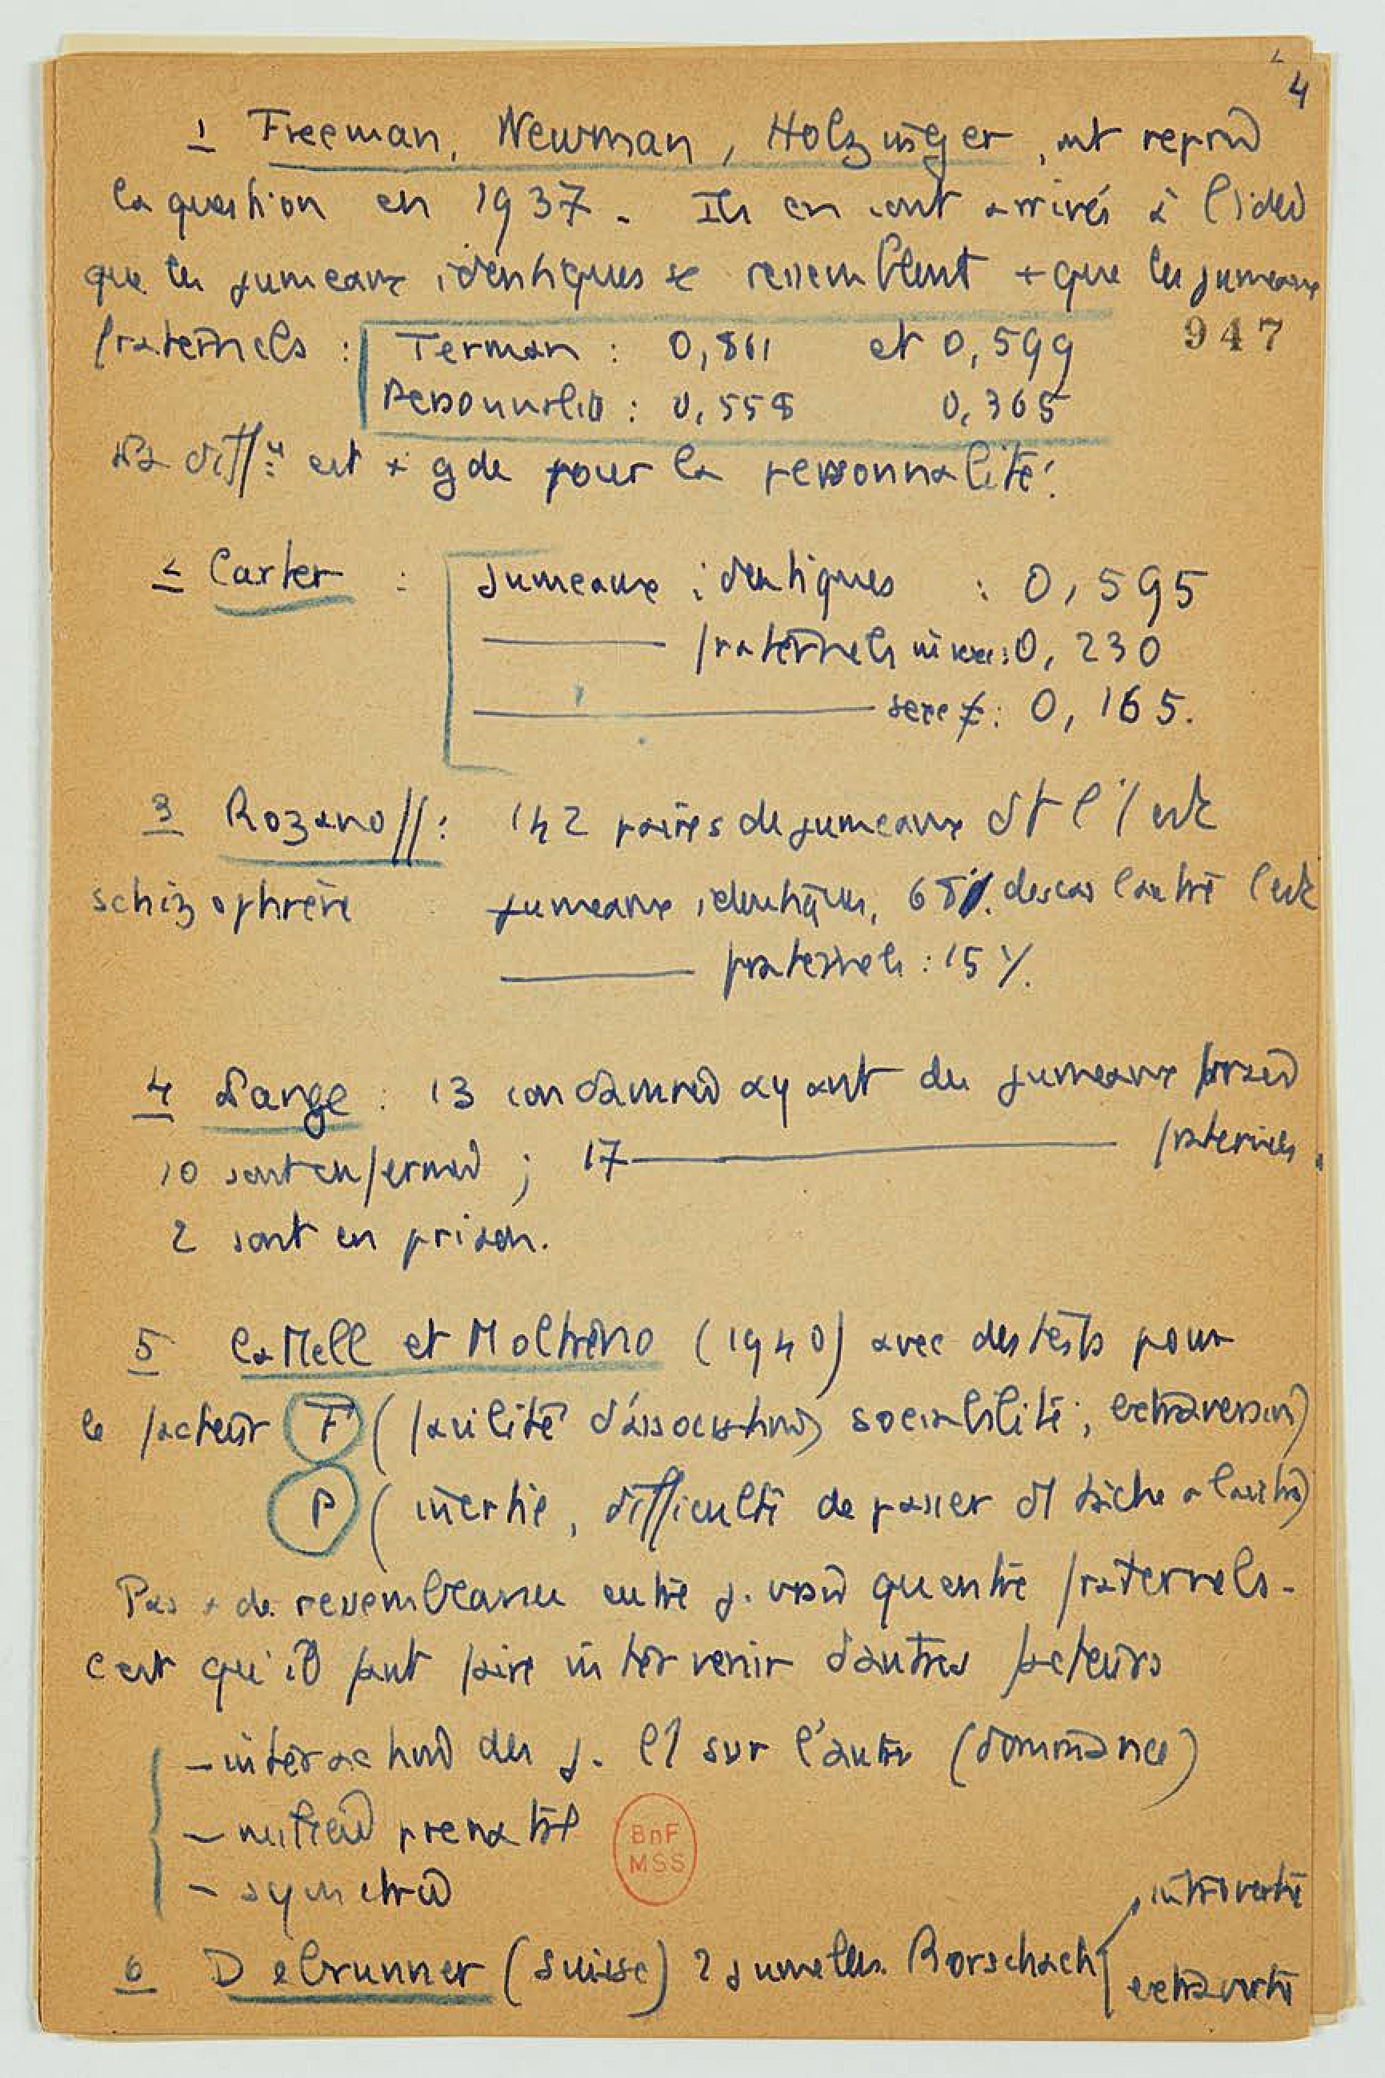 4
1 Freeman, Newman, Holzinger, ont repris
la question en 1937. Ils en sont arrivés à l'idée
que les jumeaux identiques se ressemblent + que les jumeaux
fraternels : Terman : 0,861 et 0,599
947
Personnalité : 0,558 0,365
La diff. est + gde pour la personnalité.
2 Carter : Jumeaux identiques : 0,595
fraternels m sexe : 0,230
sexe ≠ : 0,165.
3 Rozanoff : 142 paires de jumeaux dt l'1 est
schizophrène jumeaux identiques, 68%. des cas l'autre l'est
fraternels : 15 %.
4 Lange : 13 condamnés ayant des jumeaux
10 sont enfermés ; 17 fraternels.
2 sont en prison.
5 Cattell et Molteno (1940) avec des tests pour
le facteur F (facilité d'association, sociabilité, extraversion)
P (inertie, difficulté de passer d'1 tâche à l'autre)
Pas + de ressemblance entre j. vrais qu'entre fraternels -
c'est qu'il faut faire intervenir d'autres facteurs
- interaction des j. l'1 sur l'autre (dominance)
- milieu prénatal
BnF
MSS
- symétrie
6 Debrunner (Suisse) 2 jumelles. Rorschach introvertie
extravertie